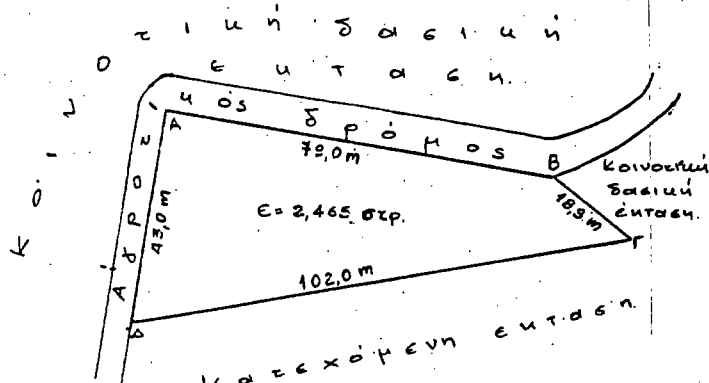 Κοινοτική δασική
έκταση.
Αγροτικός δρόμος
A
79,0 m
B
Κοινοτική
δασική
έκταση.
18,9 m
43,0 m
E = 2,465 στρ.
Γ
102,0 m
Δ
Κατεχόμενη έκταση